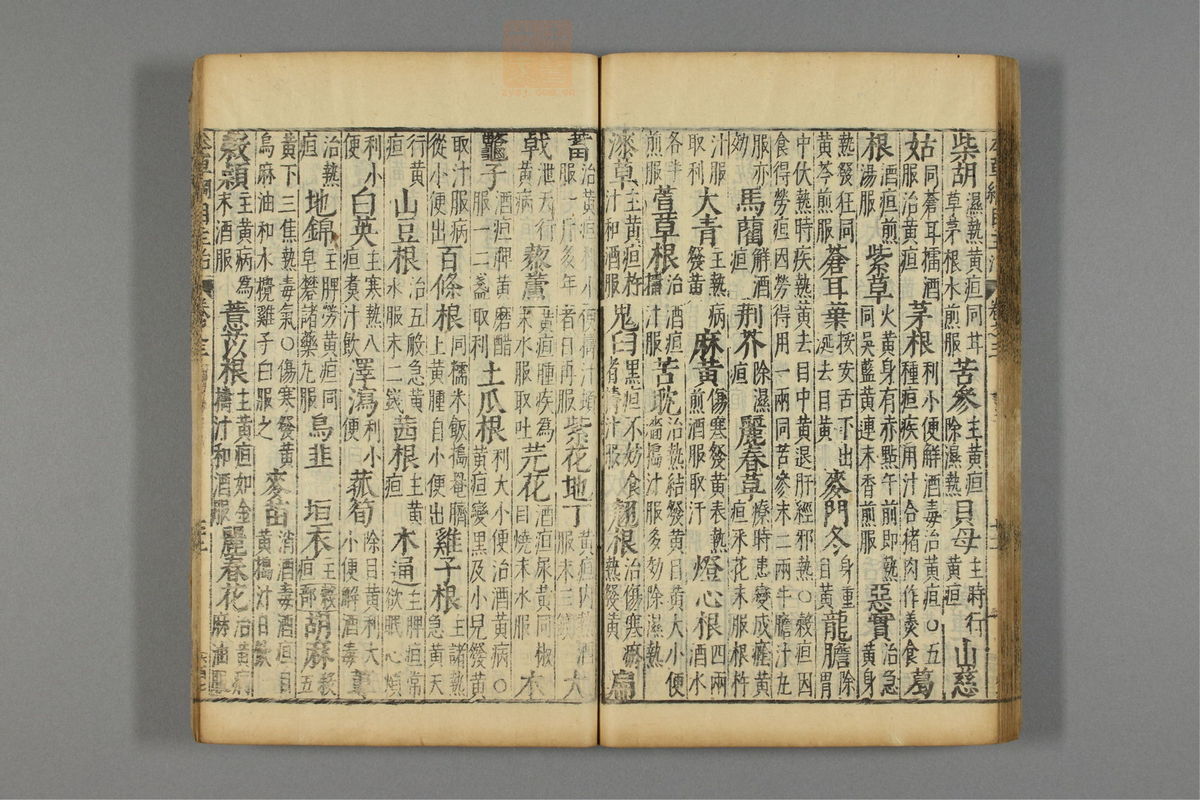 柴胡濕熱黃疸同甘草茅根水煎服苦參主黃疸除濕熱貝母主時行黃疸山慈
姑同蒼耳擂酒服治黃疸茅根利小便解酒毒治黃疸○五種疸疾用汁合猪肉作羹食葛
根酒疸煎湯服紫草火黃身有赤點午前即熱同吳藍黃連木香煎服惡實治急黃身
熱發狂同黃芩煎服蒼耳葉挼安舌下出涎去目黃麥門冬身重目黃龍膽除胃
中伏熱時疾熱黃去目中黃退肝經邪熱○穀疸因食得勞疸因勞得用一兩同苦參末二兩牛膽汁丸
服亦妙馬藺解酒疸荆芥除濕疸麗春草療時患變成癊黃疸采花末服根杵
汁服取利大青主熱病發黃麻黃傷寒發黃表熱煎酒服取汗燈心根四兩酒水
各半煎服萱草根治酒疸擣汁服苦耽治熱結發黃目黃大小便濇搗汁服多効除濕熱
漆草主黃疸杵汁和酒服鬼臼黑疸不妨食者擣汁服翹根治傷寒瘀熱發黃萹
蓄治黃疸利小便擣汁頓服一斤多年者日再服紫花地丁黃疸內熱酒服末三錢大
戟泄天行黃病藜蘆黃疸腫疾為末水服取吐芫花酒疸尿黃同椒目燒末水服木
鼈子酒疸脾黃磨醋服一二盞取利土瓜根利大小便治酒黃病○黃疸變黑及小兒發黃
取汁服病從小便出百條根同糯米飯搗罨臍上黃腫自小便出雞子根主諸熱急黃天
行黃疸山豆根治五般急黃水服末二錢茜根主黃疸木通主脾疸常欲眠心煩
利小便白英主寒熱八疸煮汁飲澤瀉利小便菰筍除目黃利大小便解酒毒萆
治熱疸地錦主脾勞黃疸同皂礬諸藥丸服烏韭 垣衣主疸穀部胡麻殺五
黃下三焦熱毒氣○傷寒發黃烏麻油和水攪雞子白服之麥苗消酒毒酒疸目黃擣汁日飲
穀穎主黃病為末酒服薏苡根主黃疸如金擣汁和酒服麗春花治黃疸麻油服